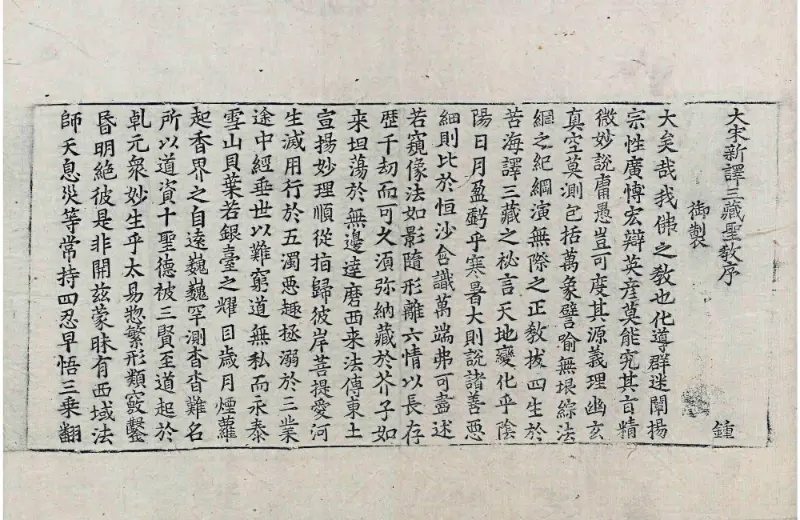 大宋新譯三藏聖敎序
御製
鍾
大矣哉我佛之敎也化導群迷闡揚
宗性廣博宏辯英彥莫能究其旨精
微妙說庸愚豈可度其源義理幽玄
真空莫測包括萬象譬喻無垠綜法
綱之紀綱演無際之正敎拔四生於
苦海譯三藏之秘言天地變化乎陰
陽日月盈虧乎寒暑大則說諸善惡
細則比於恒沙含識萬端弗可盡述
若窺像法如影隨形離六情以長存
歷千劫而可久須弥納藏於芥子如
来坦蕩於無邊達磨西来法傳東土
宣揚妙理順從指歸彼岸菩提愛河
生滅用行於五濁惡趣拯溺於三業
途中經垂世以難窮道無私而永泰
雪山貝葉若銀臺之耀目歲月煙蘿
起香界之自遠巍巍罕測杳杳難名
所以道資十聖德被三賢至道起於
乹元衆妙生乎太易惣繁形類竅鑿
昏明絕彼是非開兹蒙昧有西域法
師天息灾等常持四忍早悟三乗翻